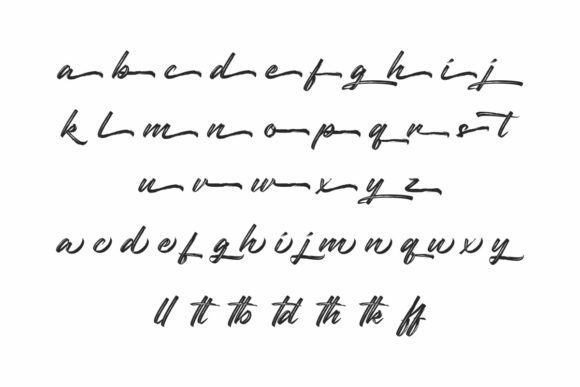 a b c d e f g h i j
k l m n o p q r s t
u v w x y z
a c d e f g h i j m n q w x y
ll tt tb td th tk ff